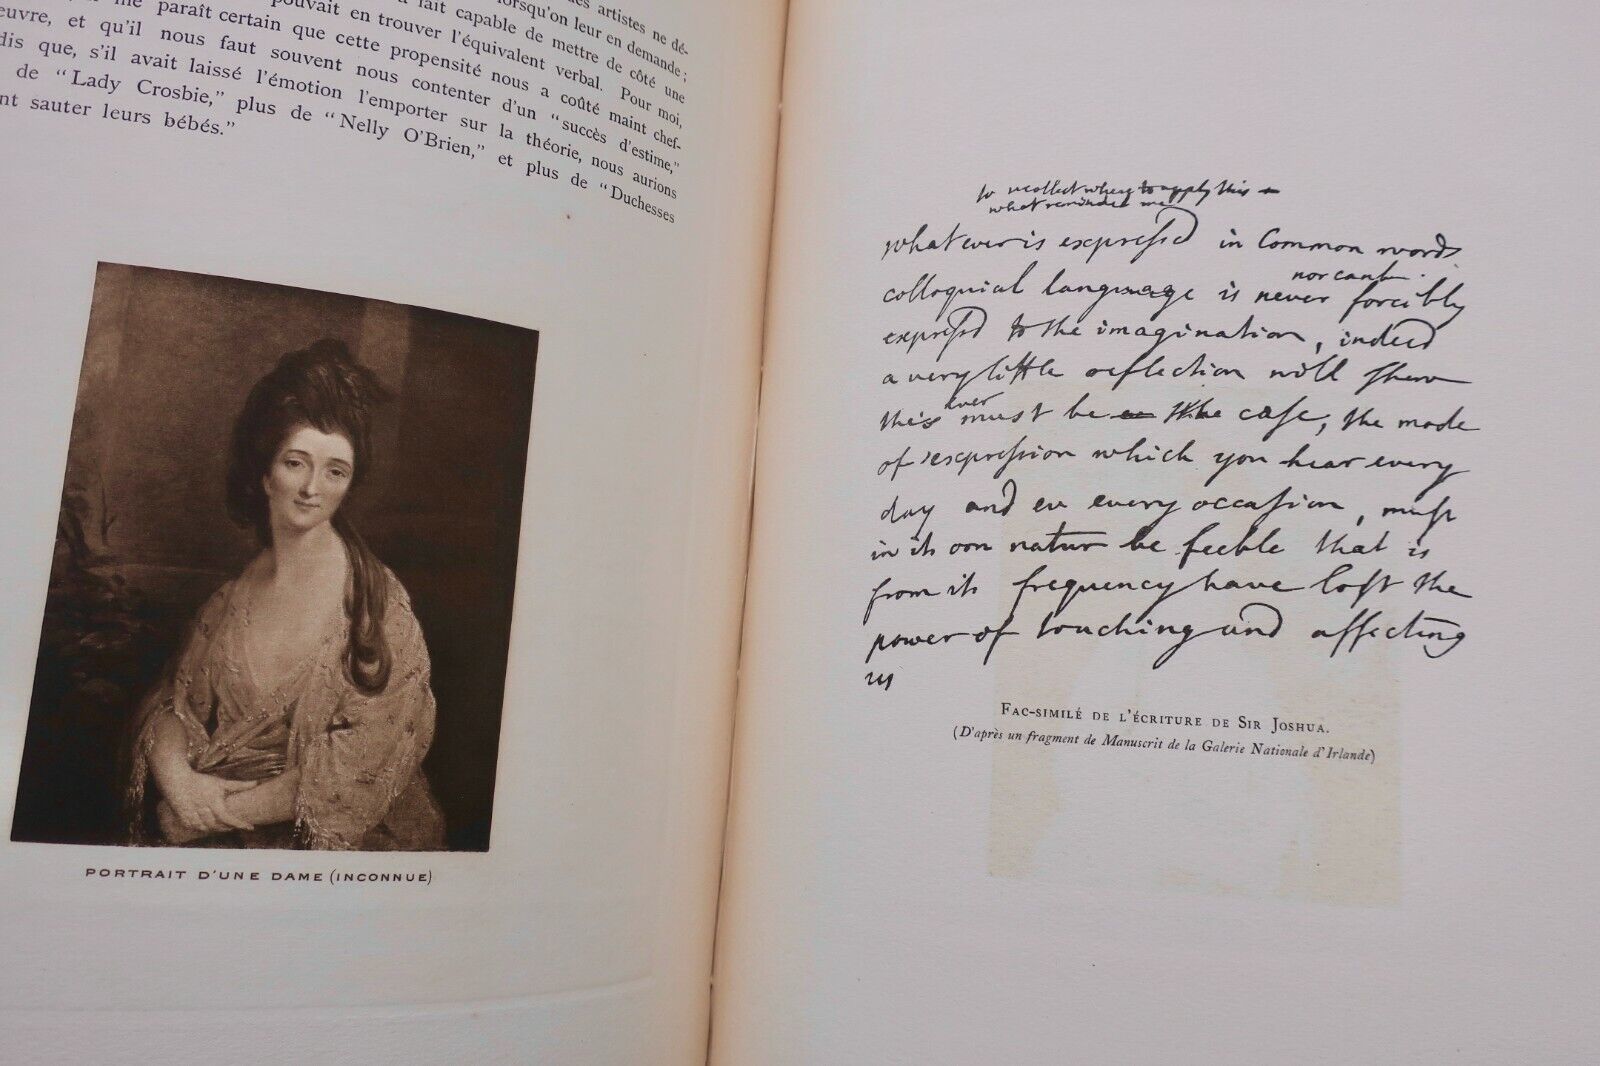 des artistes ne dé-
lorsqu'on leur en demande;
fait capable de mettre de côté une
pouvait en trouver l'équivalent verbal. Pour moi,
me paraît certain que cette propensité nous a coûté maint chef-
euvre, et qu'il nous faut souvent nous contenter d'un "succès d'estime,"
dis que, s'il avait laissé l'émotion l'emporter sur la théorie, nous aurions
de "Lady Crosbie," plus de "Nelly O'Brien," et plus de "Duchesses
nt sauter leurs bébés."
PORTRAIT D'UNE DAME (INCONNUE)
to recollect where to apply this
what reminded me
whatever is expressed in Common words
colloquial language is never forcibly
nor can be
expressd to the imagination, indeed
a very little reflection will shew
this ever must be the case, the mode
of expression which you hear every
day and every occasion, must
in its own natur be feeble that is
from its frequency have lost the
power of touching and affecting
us
FAC-SIMILÉ DE L'ÉCRITURE DE SIR JOSHUA.
(D'après un fragment de Manuscrit de la Galerie Nationale d'Irlande)